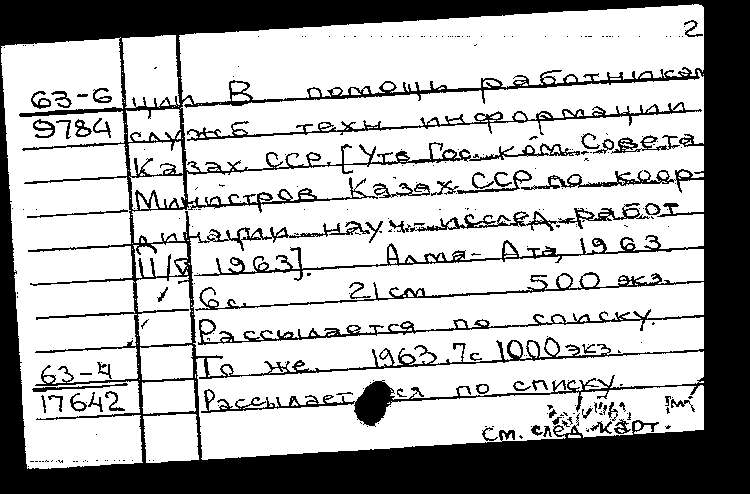 2
63-6 ции В помощь работникам
9784 служб техн информации
Казах. ССР. [Утв Гос. ком. Совета
Министров Казах. ССР по коор-
динации науч.-исслед. работ
11/V 1963]. Алма-Ата, 1963
6с. 21см 500 экз.
Рассылается по списку.
63-4 То же. 1963. 7с 1000экз.
17642 Рассылается по списку.
См. след. карт.